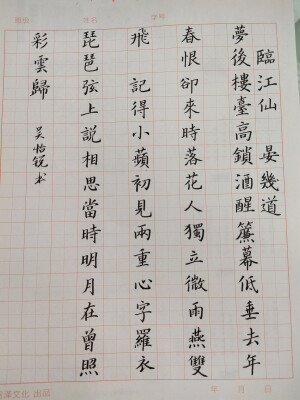 班級 姓名 字號
臨江仙 晏幾道
夢後樓臺高鎖酒醒簾幕低垂去年
春恨卻來時落花人獨立微雨燕雙
飛 記得小蘋初見兩重心字羅衣
琵琶弦上說相思當時明月在曾照
彩雲歸 吴怡锐书
文化 出品 年 月 日